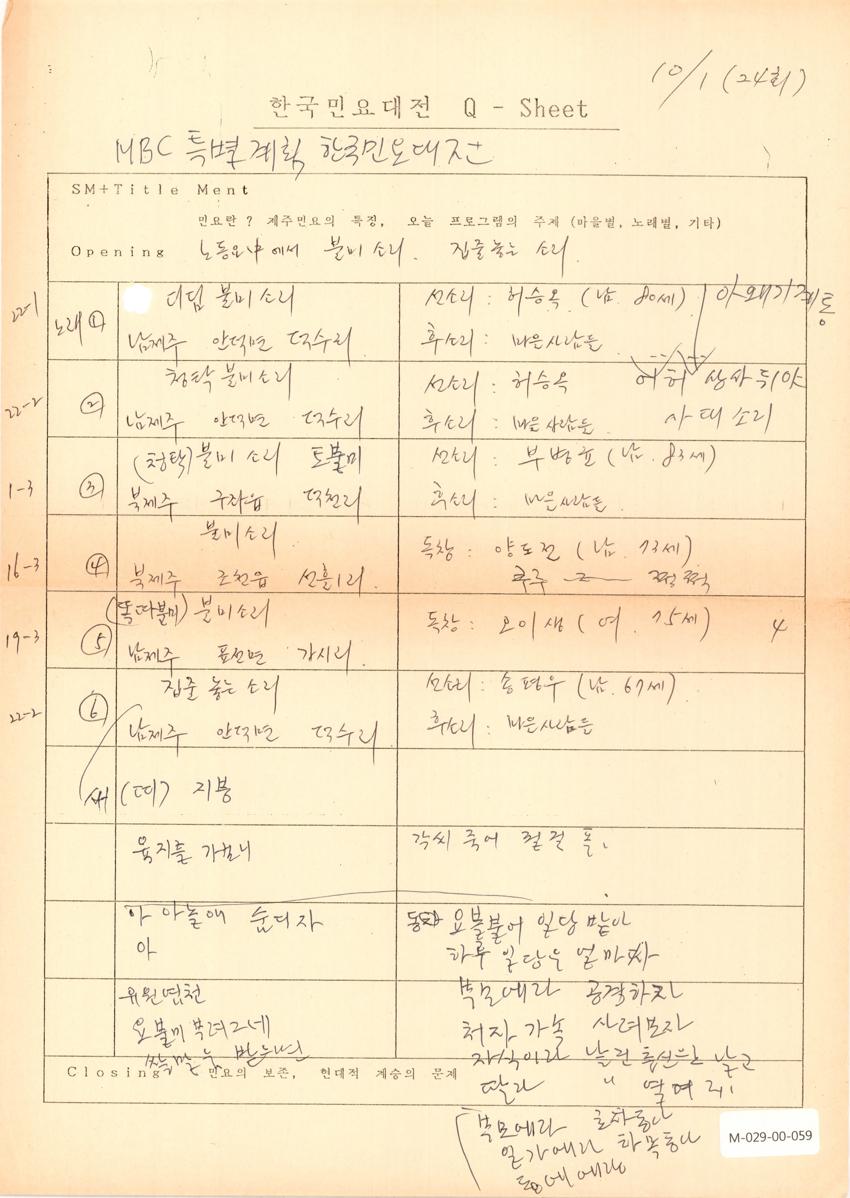 10/1 (24회)
한국민요대전 Q - Sheet
MBC 특별계획 한국민요대전
SM+Title Ment
민요란? 제주민요의 특징, 오늘 프로그램의 주제 (마을별, 노래별, 기타)
Opening 노동요中에서 불미소리. 집줄놓는 소리.
22-1 노래 ① 디딤 불미소리 선소리 : 허승옥 (남. 80세)
남제주 안덕면 덕수리 후소리 : 마을사람들
22-2 ② 청탁 불미소리 선소리 : 허승옥 어허 상사뒤야
남제주 안덕면 덕수리 후소리 : 마을사람들 사대소리
1-3 ③ (청탁) 불미소리 토불미 선소리 : 부병윤 (남. 83세)
북제주 구좌읍 덕천리 후소리 : 마을사람들
16-3 ④ 불미소리 독창 : 양도전 (남. 73세)
북제주 조천읍 선흘1리.
19-3 ⑤ (똑딱불미) 불미소리 독창 : 오이생 (여. 75세) 4
남제주 표선면 가시리.
22-2 ⑥ 집줄 놓는 소리 선소리 : 송평우 (남. 67세)
남제주 안덕면 덕수리 후소리 : 마을사람들
새 (띠) 지붕
육지를 가보니 각씨 죽어
아 아놀애 숩더자 요불불어 일당 받아
아 하루 일당은 얼마
부모에라 공격하자
요불미 부려그네 처자 가속 사려보자
Closing 민요의 보존, 현대적 계승의 문제
딸라 " 열여
부모에라
일가에라 화목동이
M-029-00-059